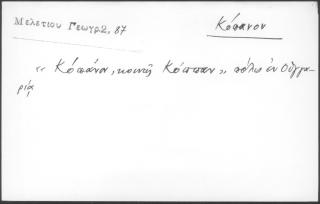 Μελετίου Γεωγρ2, 87
Κόπανον
« Κόπάνον, κοινῶς Κόππαν, » πόλις ἐν Οὑγγα-
ρίᾳ